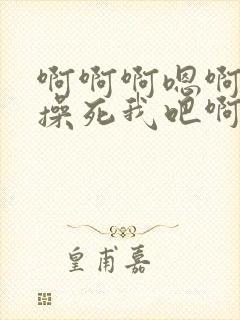 啊啊啊嗯啊
操死我吧啊
皇甫嘉